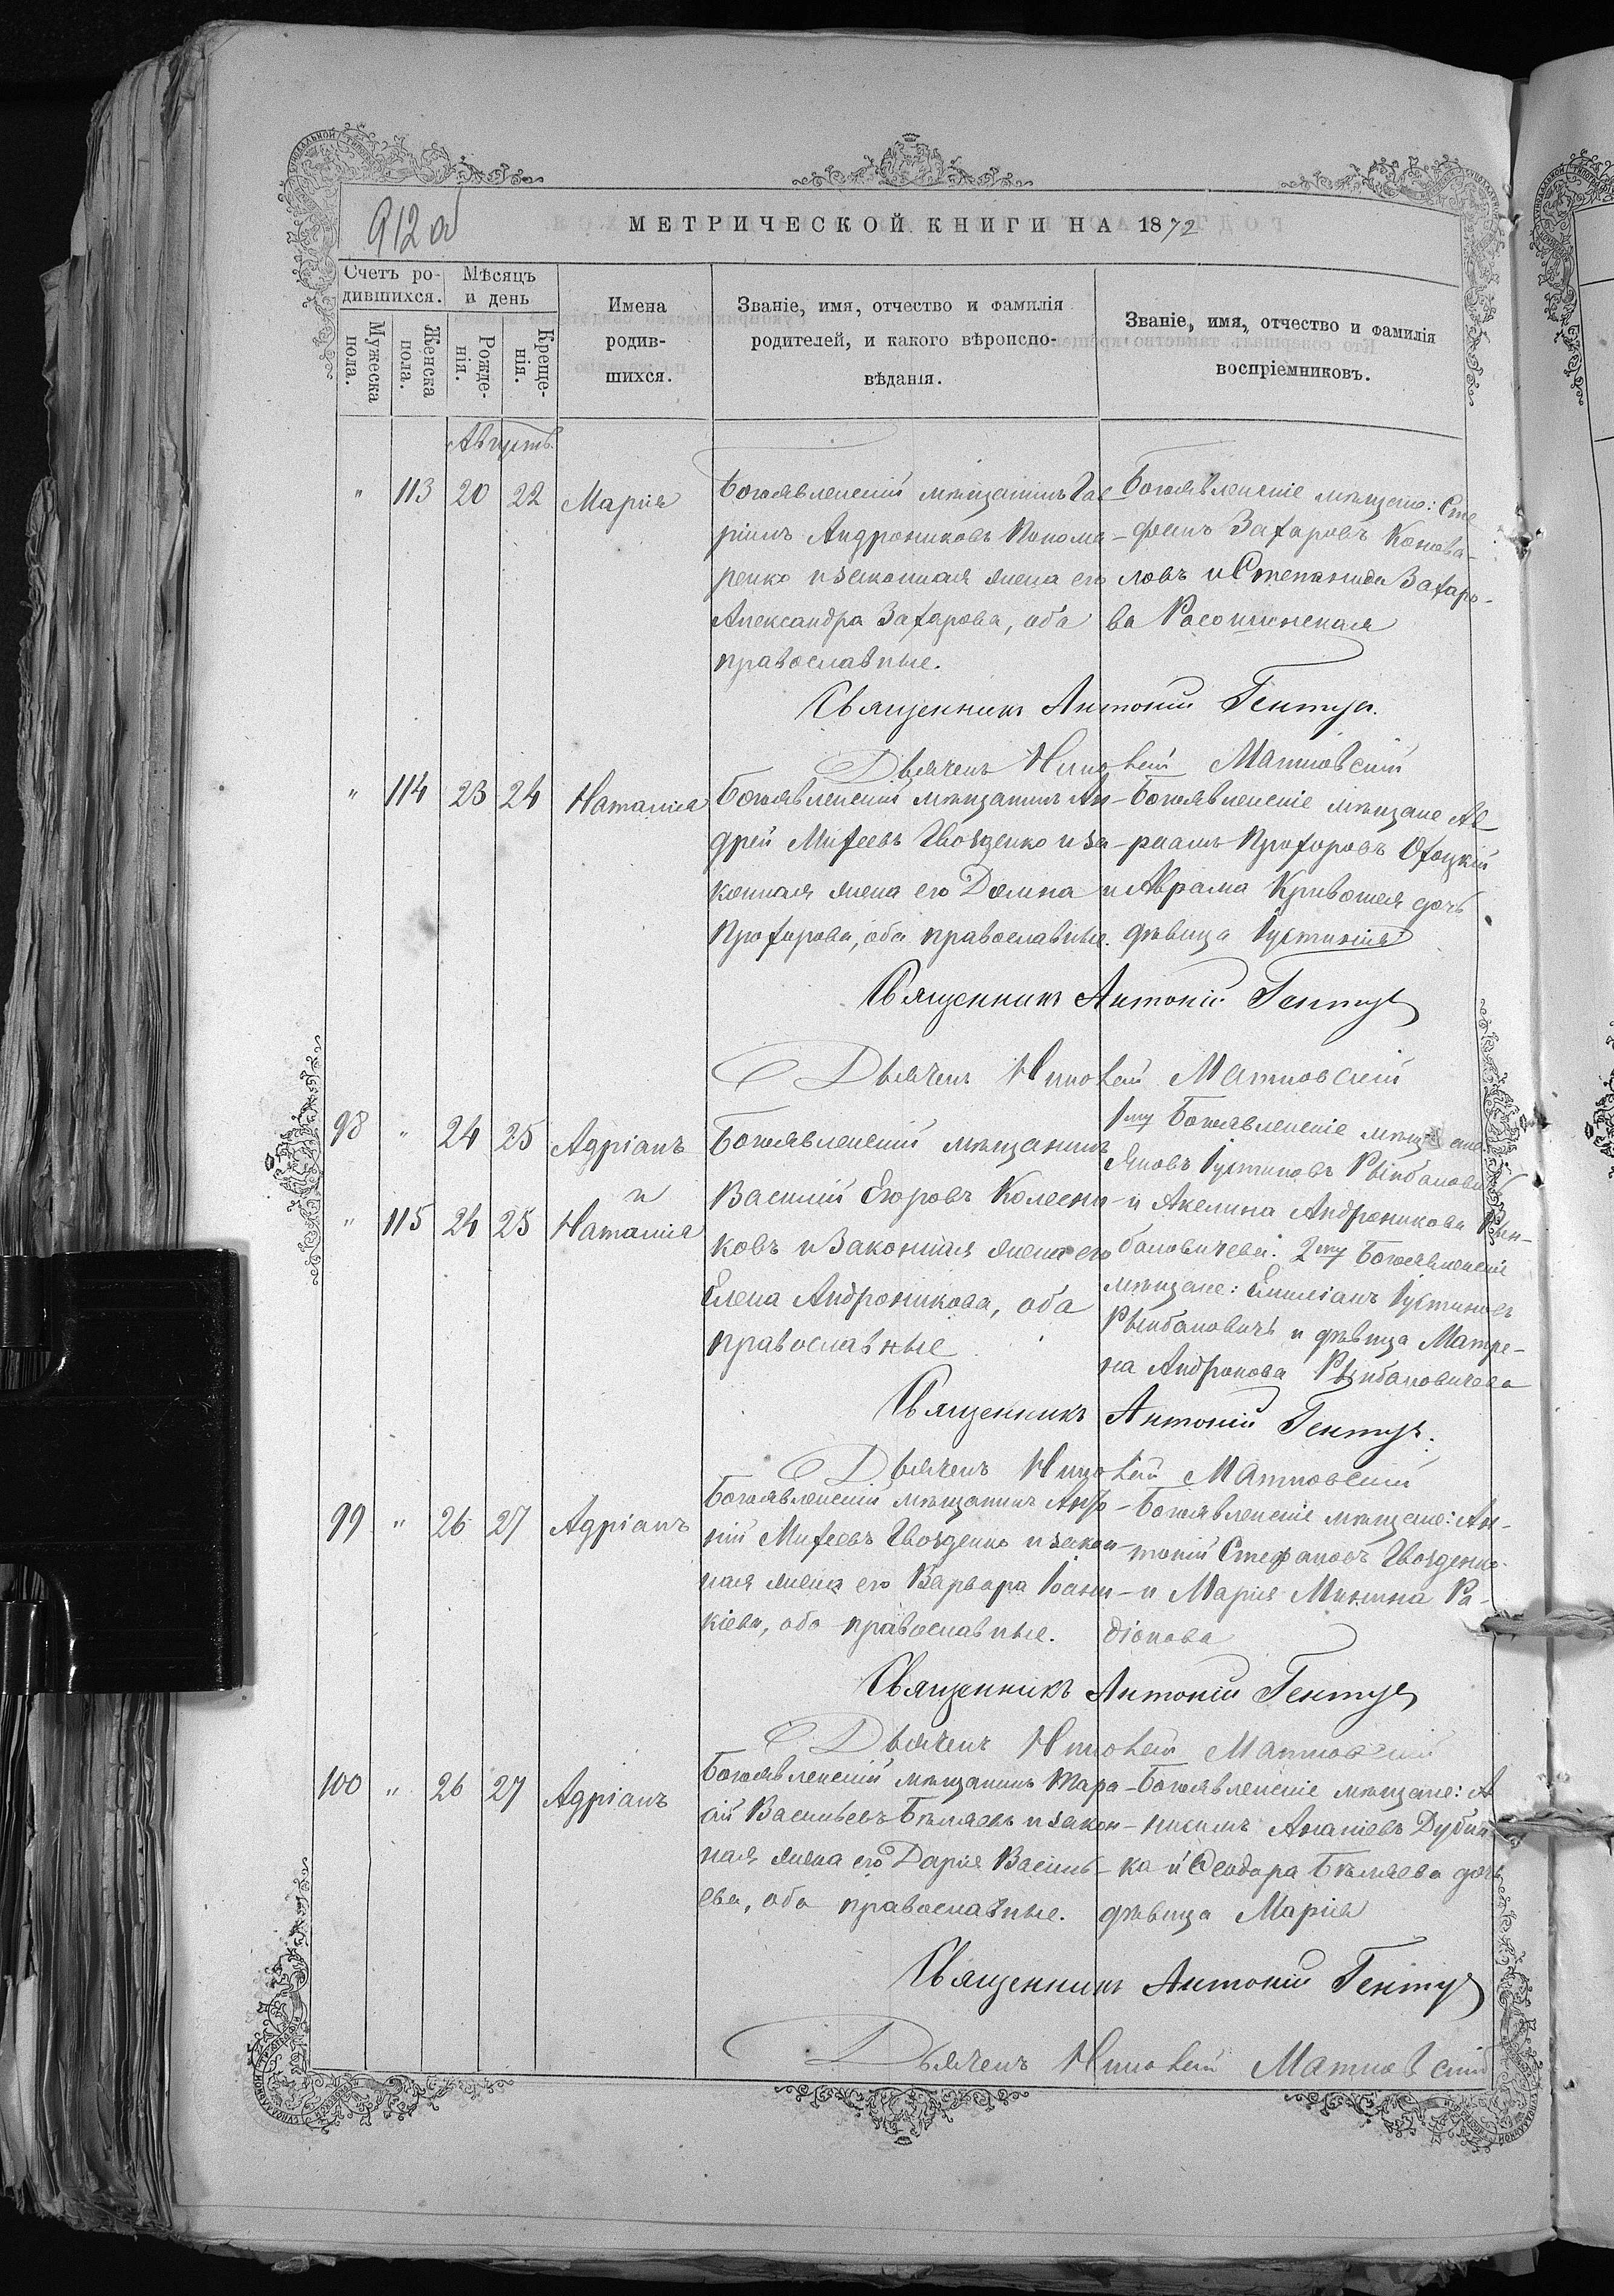 912 об
МЕТРИЧЕСКОЙ КНИГИ НА 1872
Счетъ ро-
дившихся.
Мѣсяцъ
и день
Мужеска
пола.
Женска
пола.
Рожде-
нія.
Креще-
нія.
Имена
родив-
шихся.
Званіе, имя, отчество и фамилія
родителей, и какого вѣроиспо-
вѣданія.
Званіе, имя, отчество и фамилія
воспріемниковъ.
Августъ
" 113 20 22 Марія
Богоявленскій мѣщанинъ
Андрониковъ Понома-
ренко и законная жена его
Александра Захарова, оба
православные.
Богоявленскіе мѣщане: Сте-
фанъ Захаровъ Конова-
ловъ и Степанида Захаро-
ва
Священникъ Антоній Гентуъ.
Дьячекъ Матковскій
" 114 23 24 Наталія
Богоявленскій мѣщанинъ Ан-
дрей Михеевъ Гвозденко и за-
конная жена его Домна
Прохорова, оба православные.
Богоявленскіе мѣщане Ав-
раамъ Прохоровъ
и Аврама Кривошея дочь
дѣвица Іустинія
Священникъ Антоній Гентуъ
Дьячекъ Матковскій
98 " 24 25 Адріанъ
и
" 115 24 25 Наталія
Богоявленскій мѣщанинъ
Василій Егоровъ Колесни-
ковъ и законная жена его
Елена Андроникова, оба
православные
1му Богоявленскіе мѣщане
Яковъ Іустиновъ
и Акелина Андроникова
2му Богоявленскіе
мѣщане: Емиліанъ Іустиновъ
и дѣвица Матре-
на Андронова
Священникъ Антоній Гентуъ.
Дьячекъ Матковскій
99 " 26 27 Адріанъ
Богоявленскій мѣщанинъ
Михеевъ Гвозденко и закон-
ная жена его Варвара Іоан-
кіева, оба православные.
Богоявленскіе мѣщане: Ан-
тоній Стефановъ Гвозденко
и Марія Минина Ра-
діонова
Священникъ Антоній Гентуъ
Дьячекъ Матковскій
100 " 26 27 Адріанъ
Богоявленскій мѣщанинъ Тара-
сій Васильевъ Бѣляевъ и закон-
ная жена его Дарія Василь-
ева, оба православные.
Богоявленскіе мѣщане: А
нисимъ Ананіевъ Дубин-
ка и Ѳеодора Бѣляева дочь
дѣвица Марія
Священникъ Антоній Гентуъ
Дьячекъ Матковскій